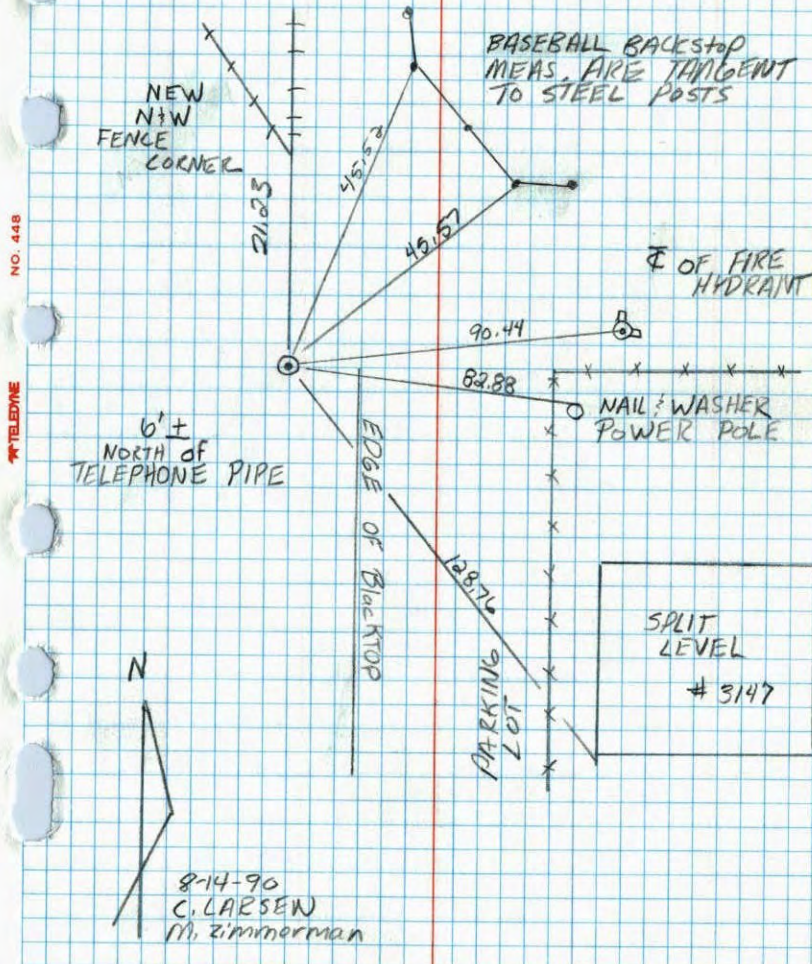 BASEBALL BACKStoP
MEAS. ARE TANGENT
TO STEEL POSTS
NEW
N&W
FENCE
CORNER
21.23
45.57
NO. 448
℄ OF FIRE
HYDRANT
90.44
82.88
NAIL & WASHER
POWER POLE
TELEDYNE
6' ±
NORTH of
TELEPHONE PIPE
EDGE OF BlacKTOP
128.76
PARKING
LOT
SPLIT
LEVEL
# 3147
N
8-14-90
C. LARSEN
M. Zimmerman